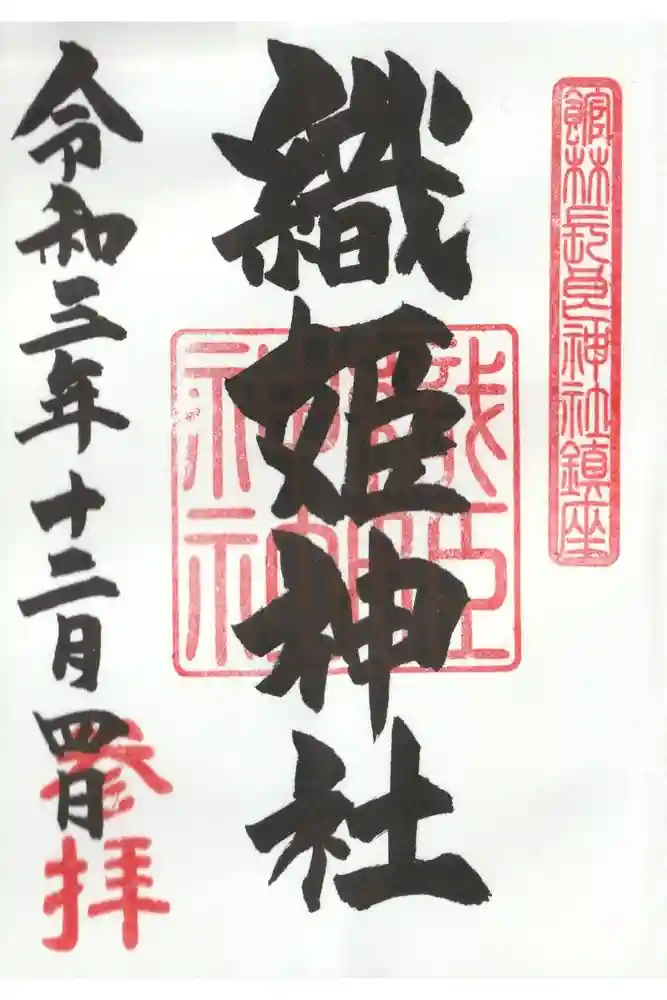 館林長良神社鎮座
織姫神社
織姫神社
令和三年十二月四日
参拝